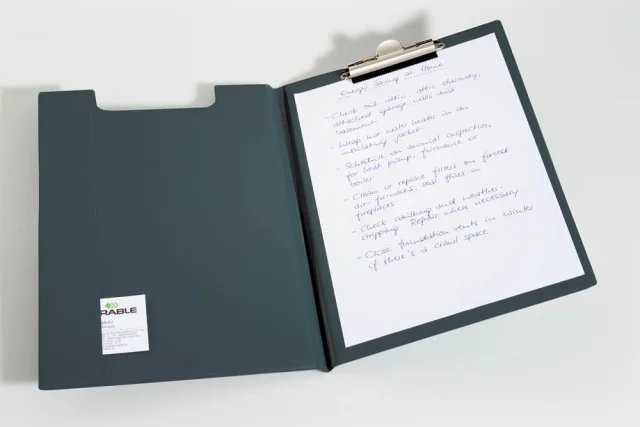 Energy Saving at Home
- Check out attic, attic stairway,
attached garage walls and
basement
- Wrap hot water heater in an
insulating jacket
- Schedule an annual inspection
for heat pump, furnance or
boiler
- Clean or replace filters on forced
air furnaces, seal flues in
fireplaces
- Check caulking and weather-
stripping. Repair where necessary
- Close foundation vents in winter
if there's a crawl space
RABLE